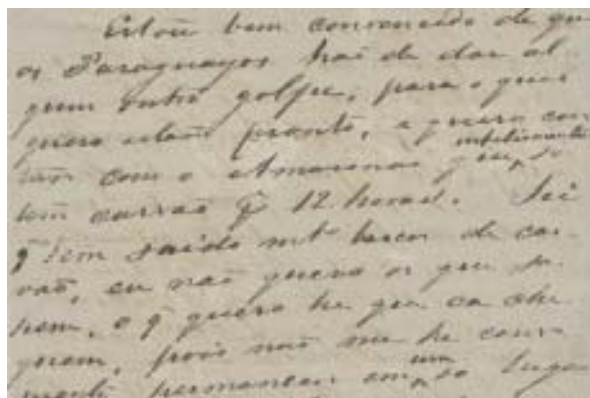 Estou bem convencido de que
os Paraguayos hai de dar al
gum outro golpe, para o qual
quero estar prompto, e quero con
tar com o Amazonas que só
infelizmente
tem carvão pª 12 horas. Sei
q̃ tem saido mtº barcos de car-
vão, eu não quero os que
o q̃ quero he que ca che
guem, pois não me he conve
permanecer em um só lugar